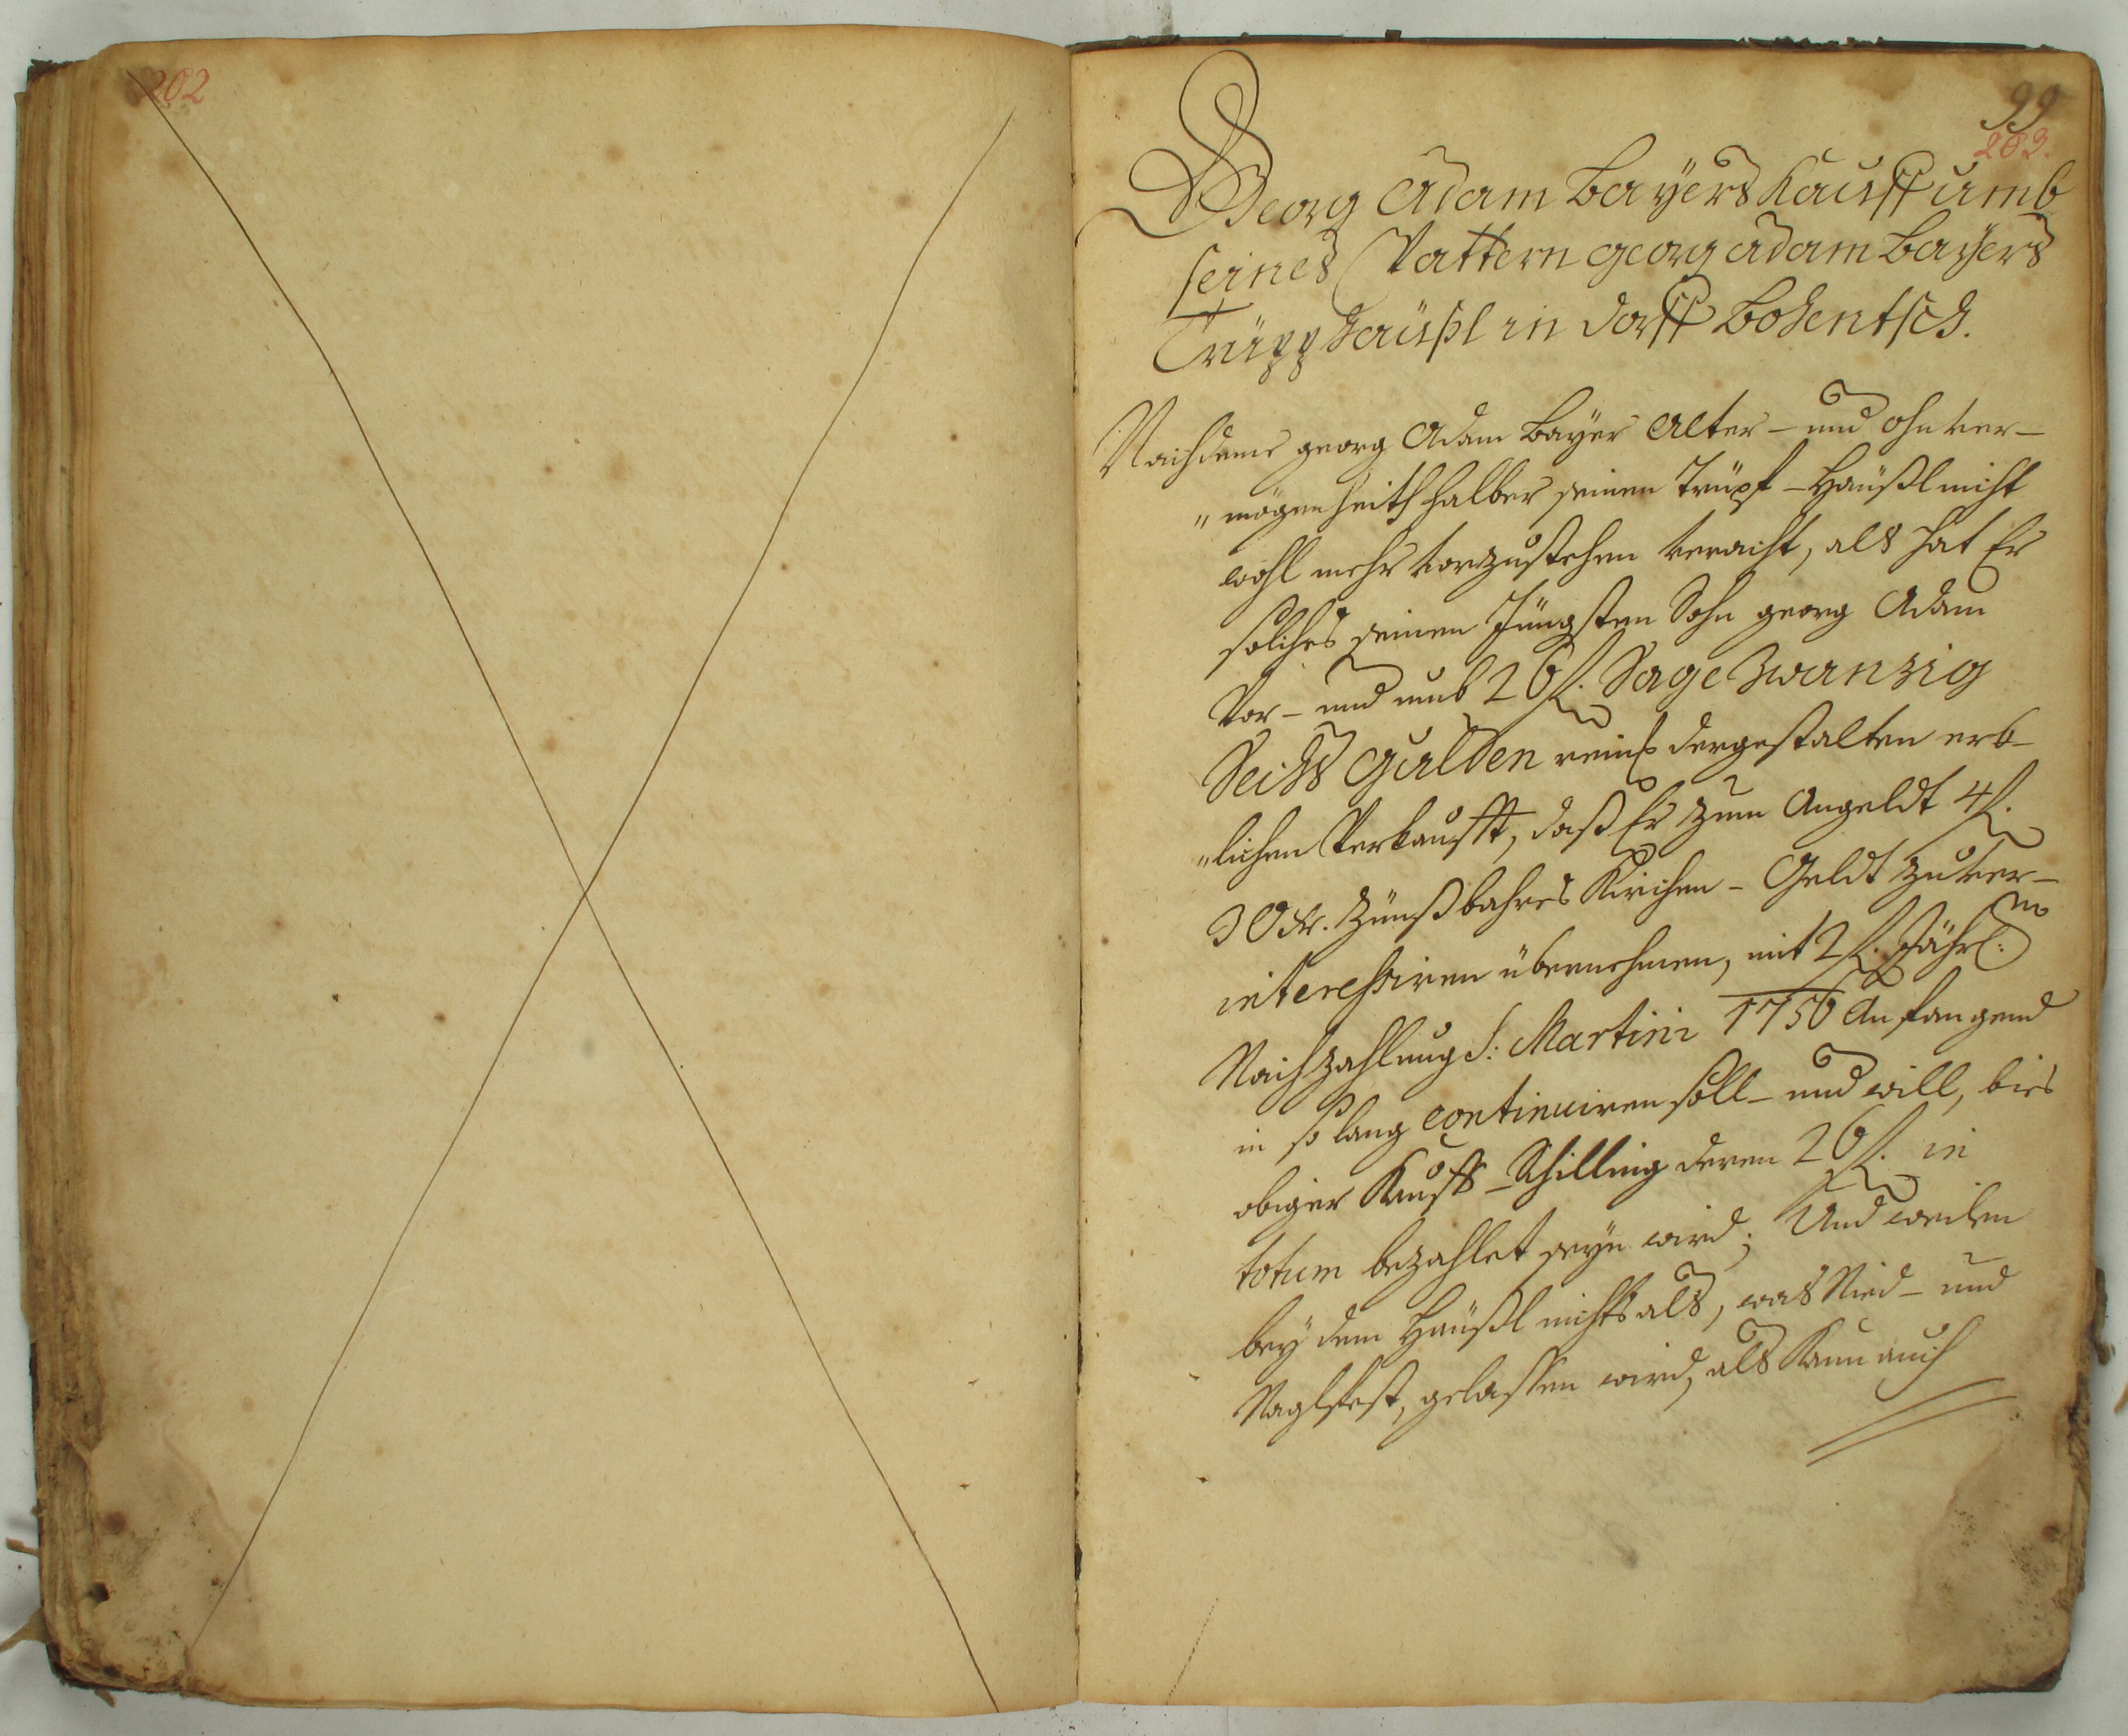 202
99
203.
Georg Adam Bayers Kauff umb
seines Vattern Georg Adam Bayers
Trüpphäußl in dorff Bohentsch.
Nachdeme georg Adam Bayer Alter- und ohnver-
„mögenheith halber seinen Trüpf-Häußl nicht
wohl mehr vorzustehen veracht, als hat Er
solches seinen Jüngsten Sohn georg Adam
Vor- und umb 26 f. Sage Zwanzig
Sechs Gulden reinl. dergestalten erb-
„lichen Verkaufft, daß Er zum Angeldt 4 f.
30 Kr. Zünßbahres Kirchen-Geldt zu ver-
interessiren übernehmen, mit 2 f. Jährl:
Nachzahlung S: Martini 1756 Anfangend
in so lang continuiren soll- und will, bies
obiger Kauff-Schilling deren 26 f. in
totum bezahlet seyn wird; Und weilen
bey dem Häußl nichts als, was Nied- und
Naglfest, gelassen wird, als Kann auch